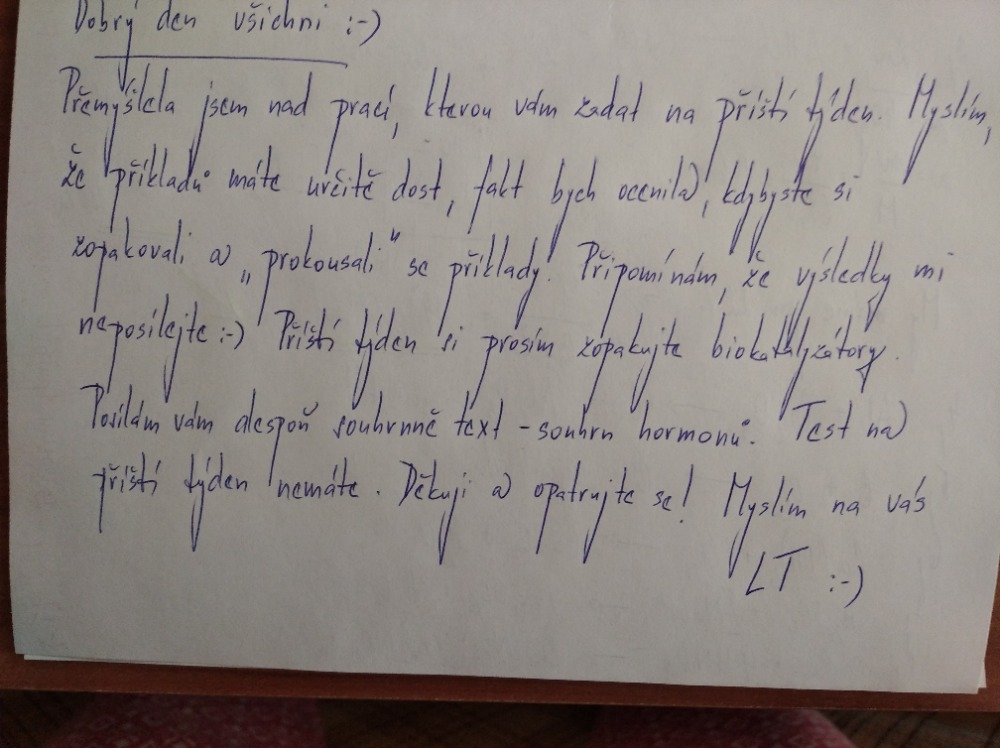 Dobrý den všichni :-)
Přemýšlela jsem nad prací, kterou vám zadat na příští týden. Myslím,
že příkladů máte určitě dost, fakt bych ocenila, kdybyste si
zopakovali a „prokousali" se příklady. Připomínám, že výsledky mi
neposílejte :-) Příští týden si prosím zopakujte biokatalyzátory.
Posílám vám alespoň souhrnně text - souhrn hormonů. Test na
příští týden nemáte. Děkuji a opatrujte se! Myslím na vás
LT :-)